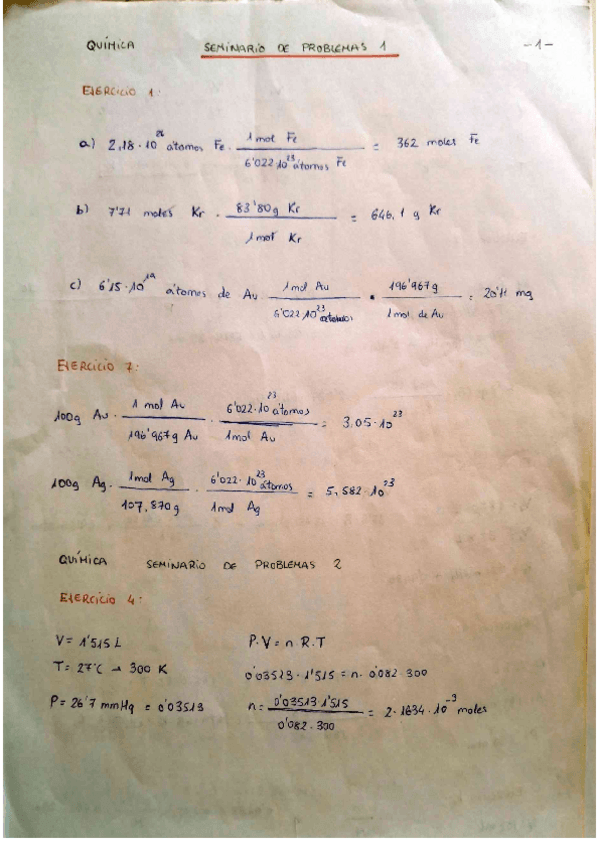 QUÍMICA SEMINARIO DE PROBLEMAS 1 -1-
EJERCICIO 1:
a) 2,18·10^26 átomos Fe · 1 mol Fe / 6'022·10^23 átomos Fe = 362 moles Fe
b) 7'71 moles Kr · 83'80g Kr / 1 mol Kr = 646,1 g Kr
c) 6'15·10^19 átomos de Au · 1 mol Au / 6'022·10^23 átomos · 196'967g / 1 mol de Au = 20'11 mg
EJERCICIO 7:
100g Au · 1 mol Au / 196'967g Au · 6'022·10^23 átomos / 1 mol Au = 3,05·10^23
100g Ag · 1 mol Ag / 107,870g · 6'022·10^23 átomos / 1 mol Ag = 5,582·10^23
QUÍMICA SEMINARIO DE PROBLEMAS 2
EJERCICIO 4:
V = 1'515 L P·V = n·R·T
T = 27ºC → 300 K 0'03513·1'515 = n·0'082·300
P = 26'7 mmHg = 0'03513 n = 0'03513·1'515 / 0'082·300 = 2.1634·10^-3 moles